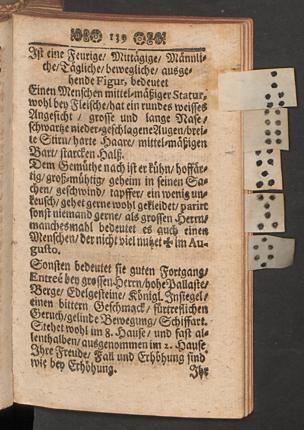 139
Ist eine Feurige/ Mittägige/ Männli-
che/Tägliche/bewegliche/ ausge-
hende Figur, bedeutet
Einen Menschen mittel-mäßiger Statur,
wohl bey Fleische/hat ein rundes weisses
Angesicht / grosse und lange Nase/
schwartze nieder-geschlagene Augen/brei-
te Stirn/ harte Haare/ mittel-mäßigen
Bart/ starcken Halß.
Dem Gemüthe nach ist er kühn/ hoffär-
tig/ groß-müthig/ geheim in seinen Sa-
chen/ geschwind/ tapffer/ ein wenig un-
keusch/ gehet gerne wohl gekleidet/ parirt
sonst niemand gerne/ als grossen Herrn/
manchesmahl bedeutet es auch einen
Menschen/ der nicht viel nutzet ✠ im Au-
gusto.
Sonsten bedeutet sie guten Fortgang/
Entreé bey grossen-Herrn/hohe Pallaste/
Berge/ Edelgesteine/ Königl. Insiegel/
einen bittern Geschmack/ fürtreflichen
Geruch/gelinde Bewegung/ Schiffart.
Stehet wohl im 8. Hause/ und fast al-
lenthalben/ ausgenommen im 2. Hause,
Ihre Freude/ Fall und Erhöhung sind
wie bey Erhöhung.
Ihr